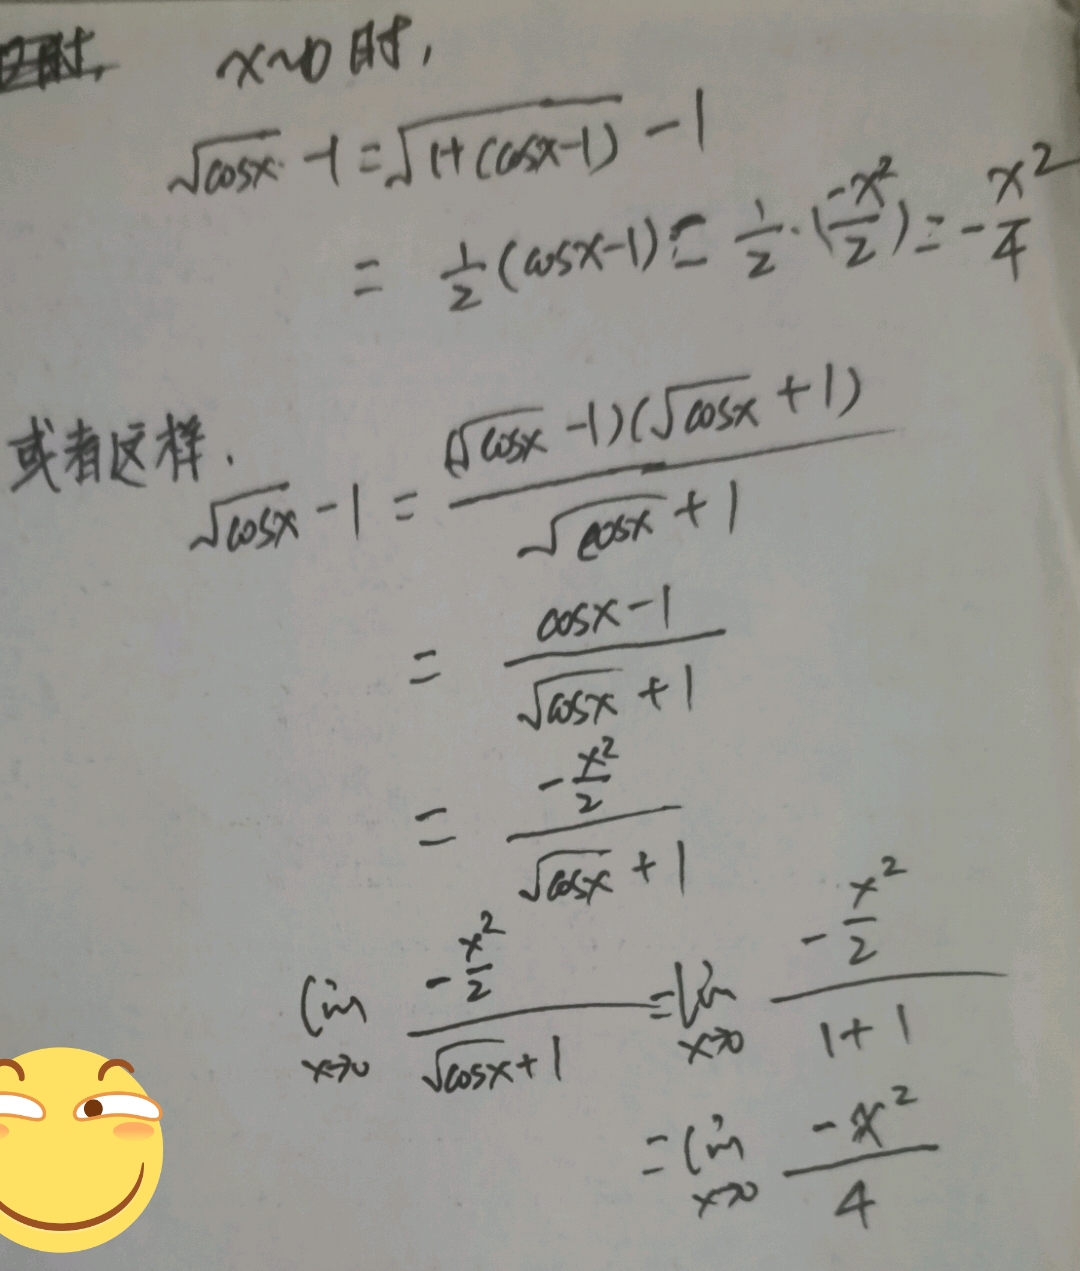 时, x~0时,
√cosx -1 = √1+(cosx-1) -1
= 1/2 (cosx-1) = 1/2 · (-x²/2) = -x²/4
或者这样.
√cosx -1 = (√cosx -1)(√cosx +1) / √cosx +1
= cosx-1 / √cosx +1
= -x²/2 / √cosx +1
lim x→0 -x²/2 / √cosx+1 = lim x→0 -x²/2 / 1+1
= lim x→0 -x²/4